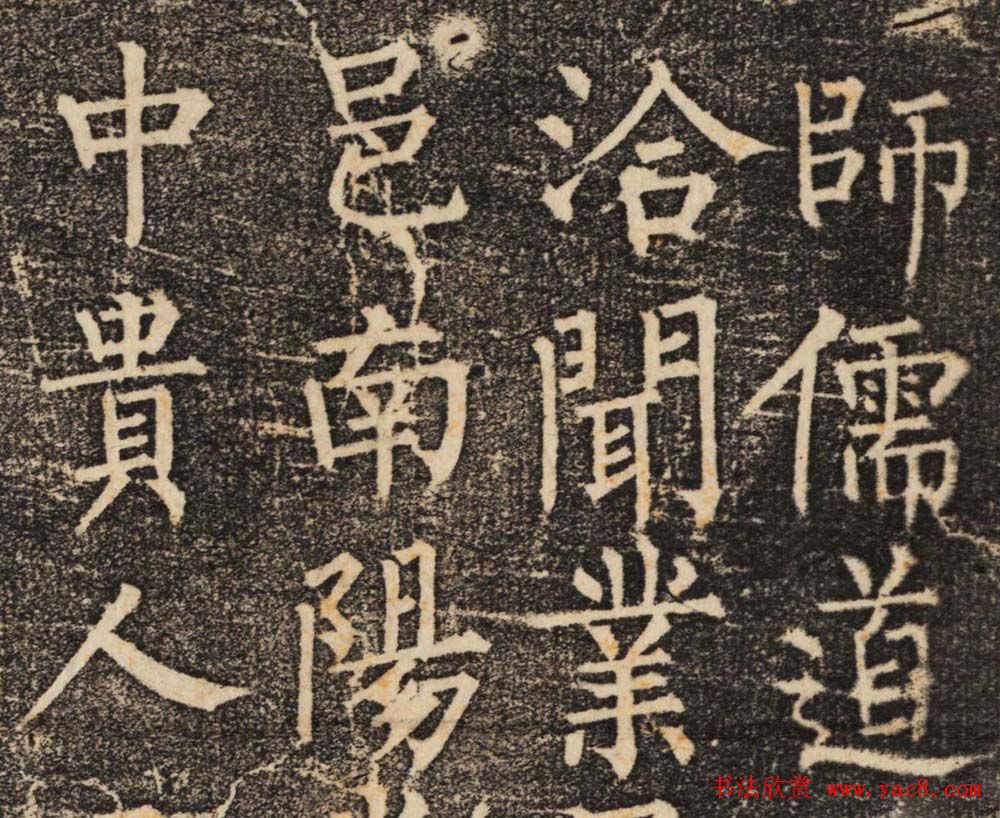 師儒道
洽聞業
邑南陽
中貴人
书法欣赏 www.yac8.com